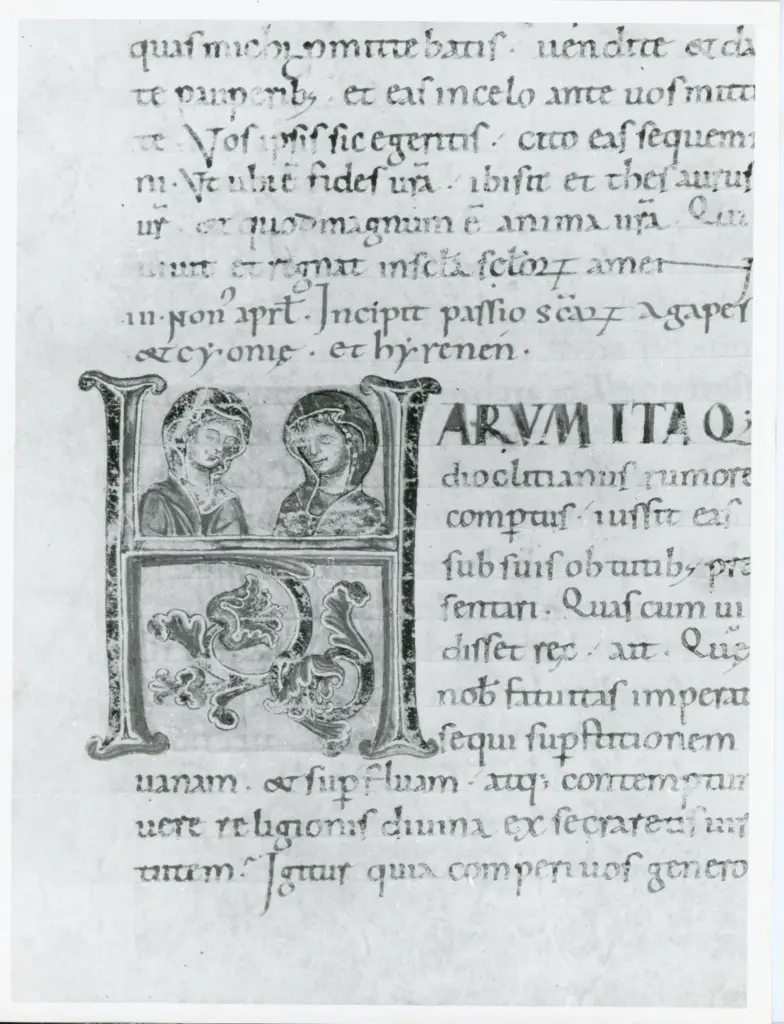 quas mich ꝓmittebatis. uendite et da
te pauperib; et eas in celo ante uos mitti
te. Vos ipsis sic egentis. cito eas sequem
ni. Vt ubi ē fides ur̄a. ibi sit et thesaurus
ur̄. et quod magnum ē anima ur̄a. Qui
uiuit et regnat in sc̄la sc̄lorꝝ amen
iii. Non aprl. Incipit passio sc̄arꝝ Agapes
et cyonię. et hyrenen.
HARVM ITA Q;
dioclitianus rumore
comptus. iussit eas
sub suis obtutib; pre
sentari. Quas cum ui
disset rex. ait. Quę
nob̄ fatuitas imperat
sequi suꝑstitionem
uanam. et suꝑfluam. atq; contemptum
uere religionis diuina exsecraretis uir
tutem. Igitur quia comperi uos genero